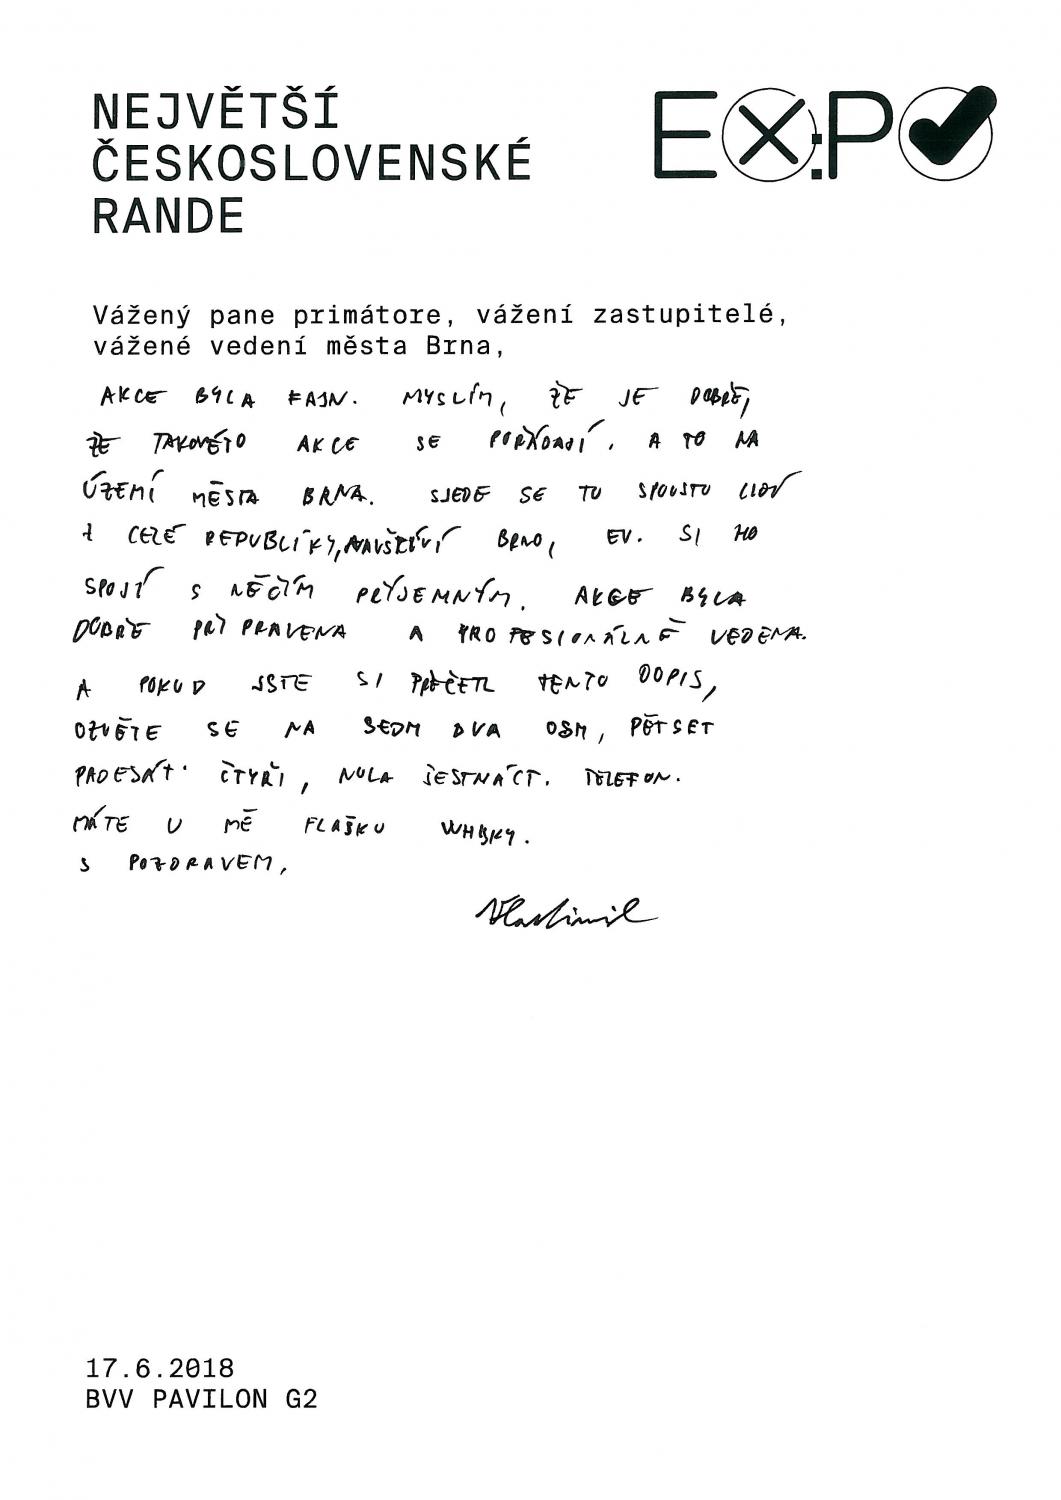 NEJVĚTŠÍ
ČESKOSLOVENSKÉ
RANDE
EX:PO
Vážený pane primátore, vážení zastupitelé,
vážené vedení města Brna,
AKCE BYLA FAJN. MYSLÍM, ŽE JE DOBŘE,
ŽE TAKOVÉTO AKCE SE POŘÁDAJÍ. A TO NA
ÚZEMÍ MĚSTA BRNA. SJEDE SE TU SPOUSTU LIDÍ
Z CELÉ REPUBLIKY, NAVŠTÍVÍ BRNO, EV. SI HO
SPOJÍ S NĚČÍM PŘÍJEMNÝM. AKCE BYLA
DOBŘE PŘIPRAVENA A PROFESIONÁLNĚ VEDENA.
A POKUD JSTE SI PŘEČETL TENTO DOPIS,
OZVĚTE SE NA SEDM DVA OSM, PĚTSET
PADESÁT ČTYŘI, NULA ŠESTNÁCT. TELEFON.
MÁTE U MĚ FLAŠKU WHISKY.
S POZDRAVEM,
Vlastimil
17.6.2018
BVV PAVILON G2